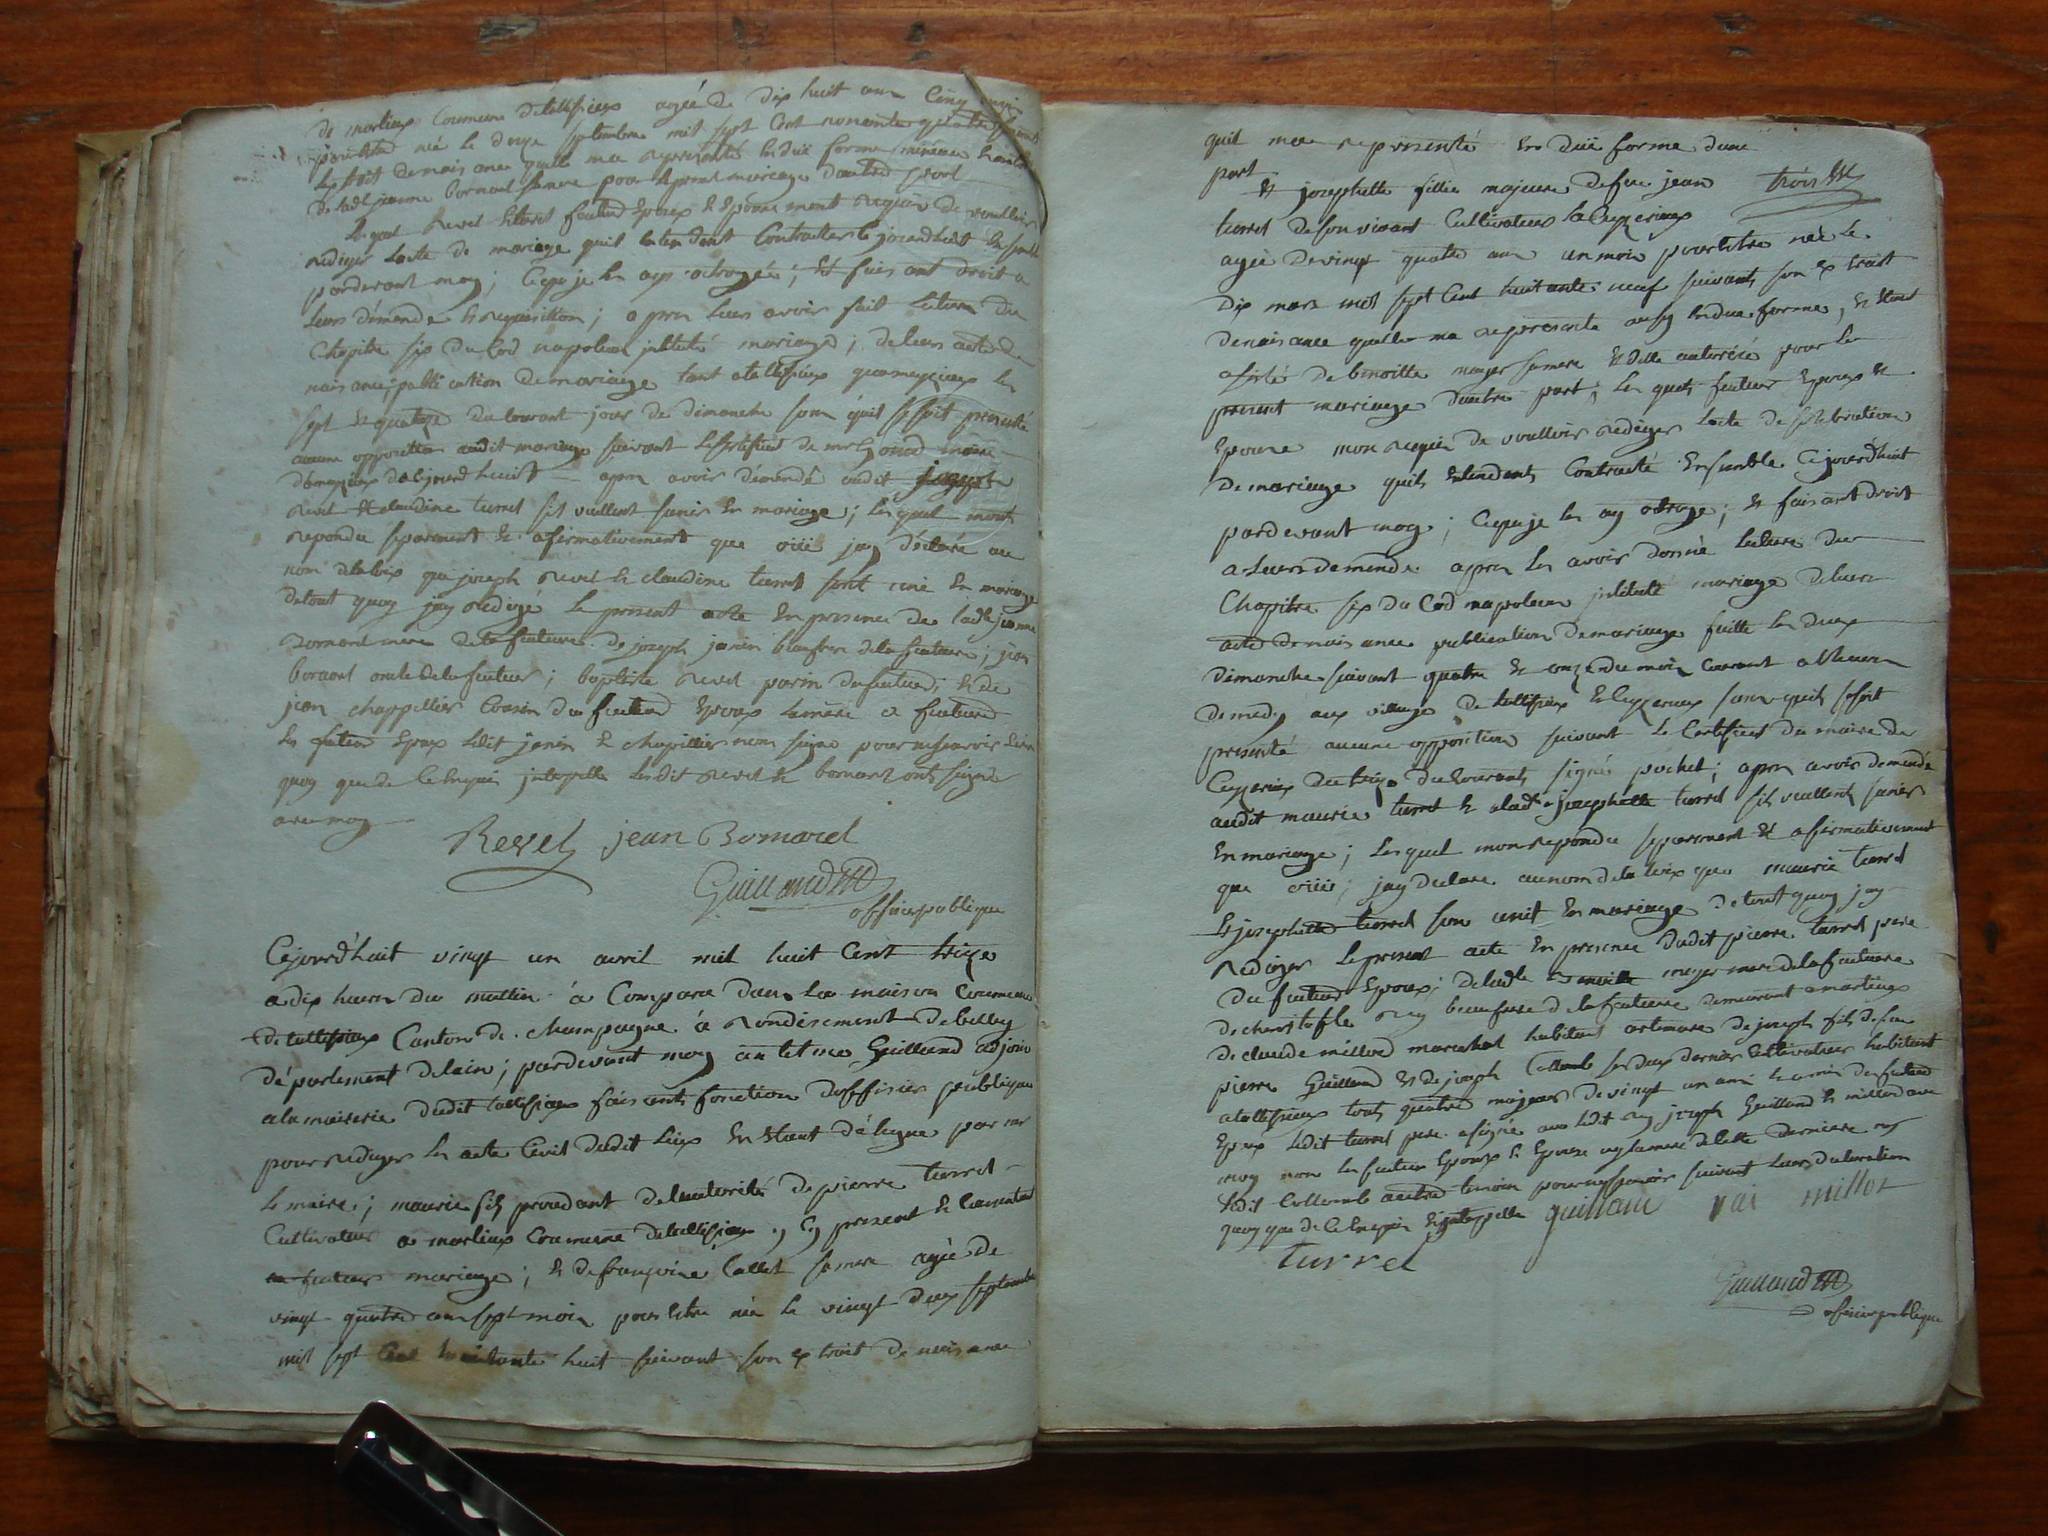 de marlieux Commune de tallissieux agée de dix huit ans Cinq
née le septembre mil sept Cent nonente quatre suivant
de naisance quelle ma representé en due forme mineure
de ladt jeanne bornard sa mere pour le present mariage d'autre part
lesquel Revel et turrel futurs Epoux et Epouse mont Requis de voulloir
rediger lacte de mariage quil entendent Contracter Cejourdhuit Ensemble
pardevant moy ; Ceque je les ay octroyée ; Et faisant droit a
leurs démende et Requisition ; apres leurs avoir fait lecture du
Chapitre six du Cod napoleon intitulé mariage ; de leurs acte de
naisance, publication de mariage tant a tallissieux
sept et quatorze du Courant jour de dimanche sans quil se soit presenté
aucune opposition audit mariage suivant le Certificat de mr maire
dejourd huit apres avoir démendé audit joseph
Revel Et claudine turrel sil veullent sunir En mariage ; lesquel mont
Repondu séparment Et afirmativement que oiii jay déclaré au
nom de la loix que joseph Revel et claudine turrel sont unie En mariage
de tout quoy jay Redigé le present acte En presence de ladte jeanne
Bornard mere de la future de joseph janin beaufrere de la future ; jean
bornard oncle de la future ; baptiste Revel parin du futur ; et de
jean chappellier Cousin du futur Epoux la mere et future
les futur Epoux ledit janin et chapellier nons signé pour ne savoir
quoy que de Ce Enquis jnterpellé lesdit Revel et bornard onts signé
avec moy
Revel jean Bornard
Guilland
officier publique
Cejourdhuit vingt un avril mil huit Cent treize
a dix heures du mattin a Comparu dans la maison Commune
de tallissieux Canton de Champagne arondisement de belley
département de lain ; pardevant moy antelme Guilland adjoin
a la mairerie dudit tallissieux faisants fonction dofficier publique
pour rediger les acte Civil dudit lieux En Etant délegue par mr
le maire ; maurie fils proceddant de lautorité de pierre turrel
Cultivateur a marlieux Commune de tallissieux y Cy present et Consentant
au futur mariage ; et de françoise Callet sa mere agée de
vingt quatre ans sept mois pour Etre née le vingt deux septembre
mil sept Cent huitante huit suivant son extrait de naisance
quil mea representé En due forme dune
part
Et josephette fillie majeure de feu jean
turrel de son vivant Cultivateur a Ceyzerieux
agée de vingt quatre ans un mois pour Etre née le
dix mars mil sept Cent huitante neuf suivants son Extrait
de naisance quelle ma represente ausy En due forme, Et Etant
de benoitte moyer sa mere Et delle autorisée pour le
present mariage dautre part ; lesquels futur Epoux Et
Epouse mon Requis de voulloir rediger lacte de
de mariage quils Entendents Contracté Ensemble Cejourdhuit
pardevant moy ; Ceque je les ay octroyé ; et faisant droit
a leurs demende apres les avoir donné lecture du
Chapitre six du Cod napoleon intitulé mariage de leurs
acte de naisance publication de mariage faitte les deux
dimanche suivant quatre et onze du mois Courant a lheure
de medy aux village de tallissieux et Ceyzerieux sans quil se soit
presenté aucune opposition suivant le Certificat du maire de
Ceyzerieux du treize du Courant signé pochet ; apres avoir demendé
audit maurie turrel et a ladte josephette turrel sils veullent sunir
En mariage ; lesquel mon repondu séparment Et afirmativement
que oiiii ; jay declaré au nom de la loix que maurie turrel
Et josephette turrel son unit En mariage de tout quoy jay
Rediger le present acte En presence dudit pierre turrel pere
du futur Epoux ; de ladte Benoitte moyer mere de la future
de christofle Rey beaufrere de la future demeurant a marlieux
de claude millod marechal habitant artemare de joseph fils de feu
pierre Guilland et de joseph Collomb les deux dernier Cultivateur habitant
a tallissieux touts quatre majeurs de vingt un ans du futur
Epoux ledit turrel pere a signé avec ledit Rey joseph Guilland et millod avec
moy non les futur Epoux et Epouse ny la mere de cette derniere ny
ledit Collomb autre temoin pour ne savoir suivant leurs declaration
quoy que de Ce Enquis et jnterpellé guilland rai millot
turrel
Guilland
officier publique